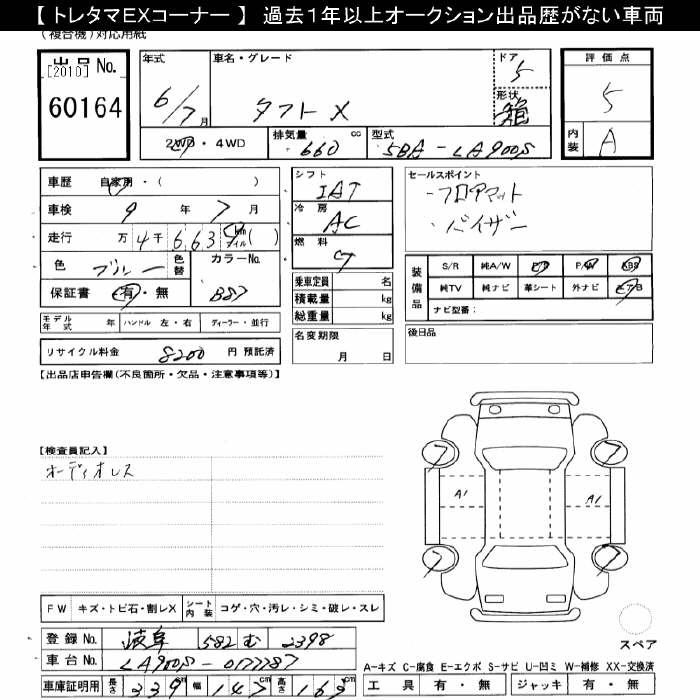 【 トレタマEXコーナー 】 過去1年以上オークション出品歴がない車両
(複合機)対応用紙
出品 No.
[2010]
60164
年式
6/7月
車名・グレード
タフト X
ドア
5
形状
箱
2WD・4WD
排気量 660 cc
型式 5BA-LA900S
評価点
5
内装 A
車歴 自家用・( )
車検 9 年 7 月
走行 万 4 千 6,639 km マイル ( )
色 ブルー 色替
カラーNo. B87
保証書 有・無
シフト
IAT
冷房
AC
燃料
乗車定員 名
積載量 kg
総重量 kg
名変期限
月 日
セールスポイント
・フロアマット
・バイザー
装備品
S/R 純A/W P/S P/W ABS
純TV 純ナビ 革シート 外ナビ ETB
ナビ型番:
後日品
モデル年式 年 ハンドル 左・右 ディーラー・並行
リサイクル料金 8200 円 預託済
【出品店申告欄(不良箇所・欠品・注意事項等)】
【検査員記入】
オーディオレス
A1 A1
FW キズ・トビ石・割レX シート内装 コゲ・穴・汚レ・シミ・破レ・スレ
スペア
登録 No. 岐阜 582 む 2398
車台 No. LA900S-0177787
A-キズ C-腐食 E-エクボ S-サビ U-凹ミ W-補修 XX-交換済
車庫証明用 長さ 339 cm 幅 147 cm 高さ 163 cm
工具 有・無 ジャッキ 有・無